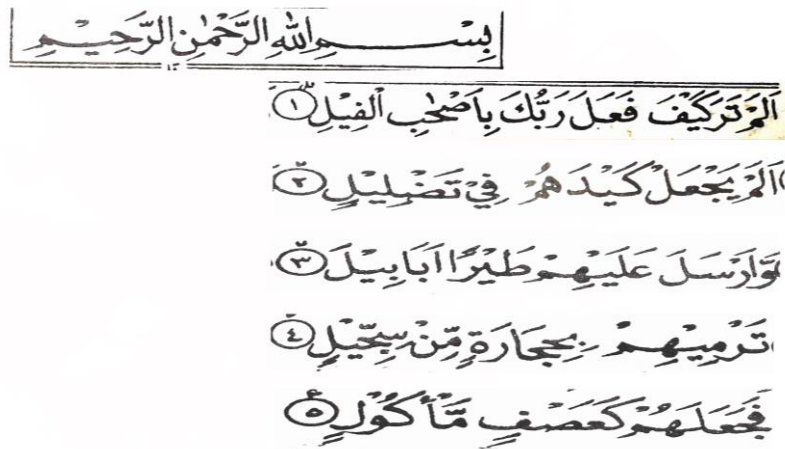 بِسْمِ اللهِ الرَّحْمٰنِ الرَّحِيْمِ
١٢
اَلَمْ تَرَ كَيْفَ فَعَلَ رَبُّكَ بِاَصْحٰبِ الْفِيْلِ ١
اَلَمْ يَجْعَلْ كَيْدَهُمْ فِيْ تَضْلِيْلٍ ٢
وَّاَرْسَلَ عَلَيْهِمْ طَيْرًا اَبَابِيْلَ ٣
تَرْمِيْهِمْ بِحِجَارَةٍ مِّنْ سِجِّيْلٍ ٤
فَجَعَلَهُمْ كَعَصْفٍ مَّأْكُوْلٍ ٥